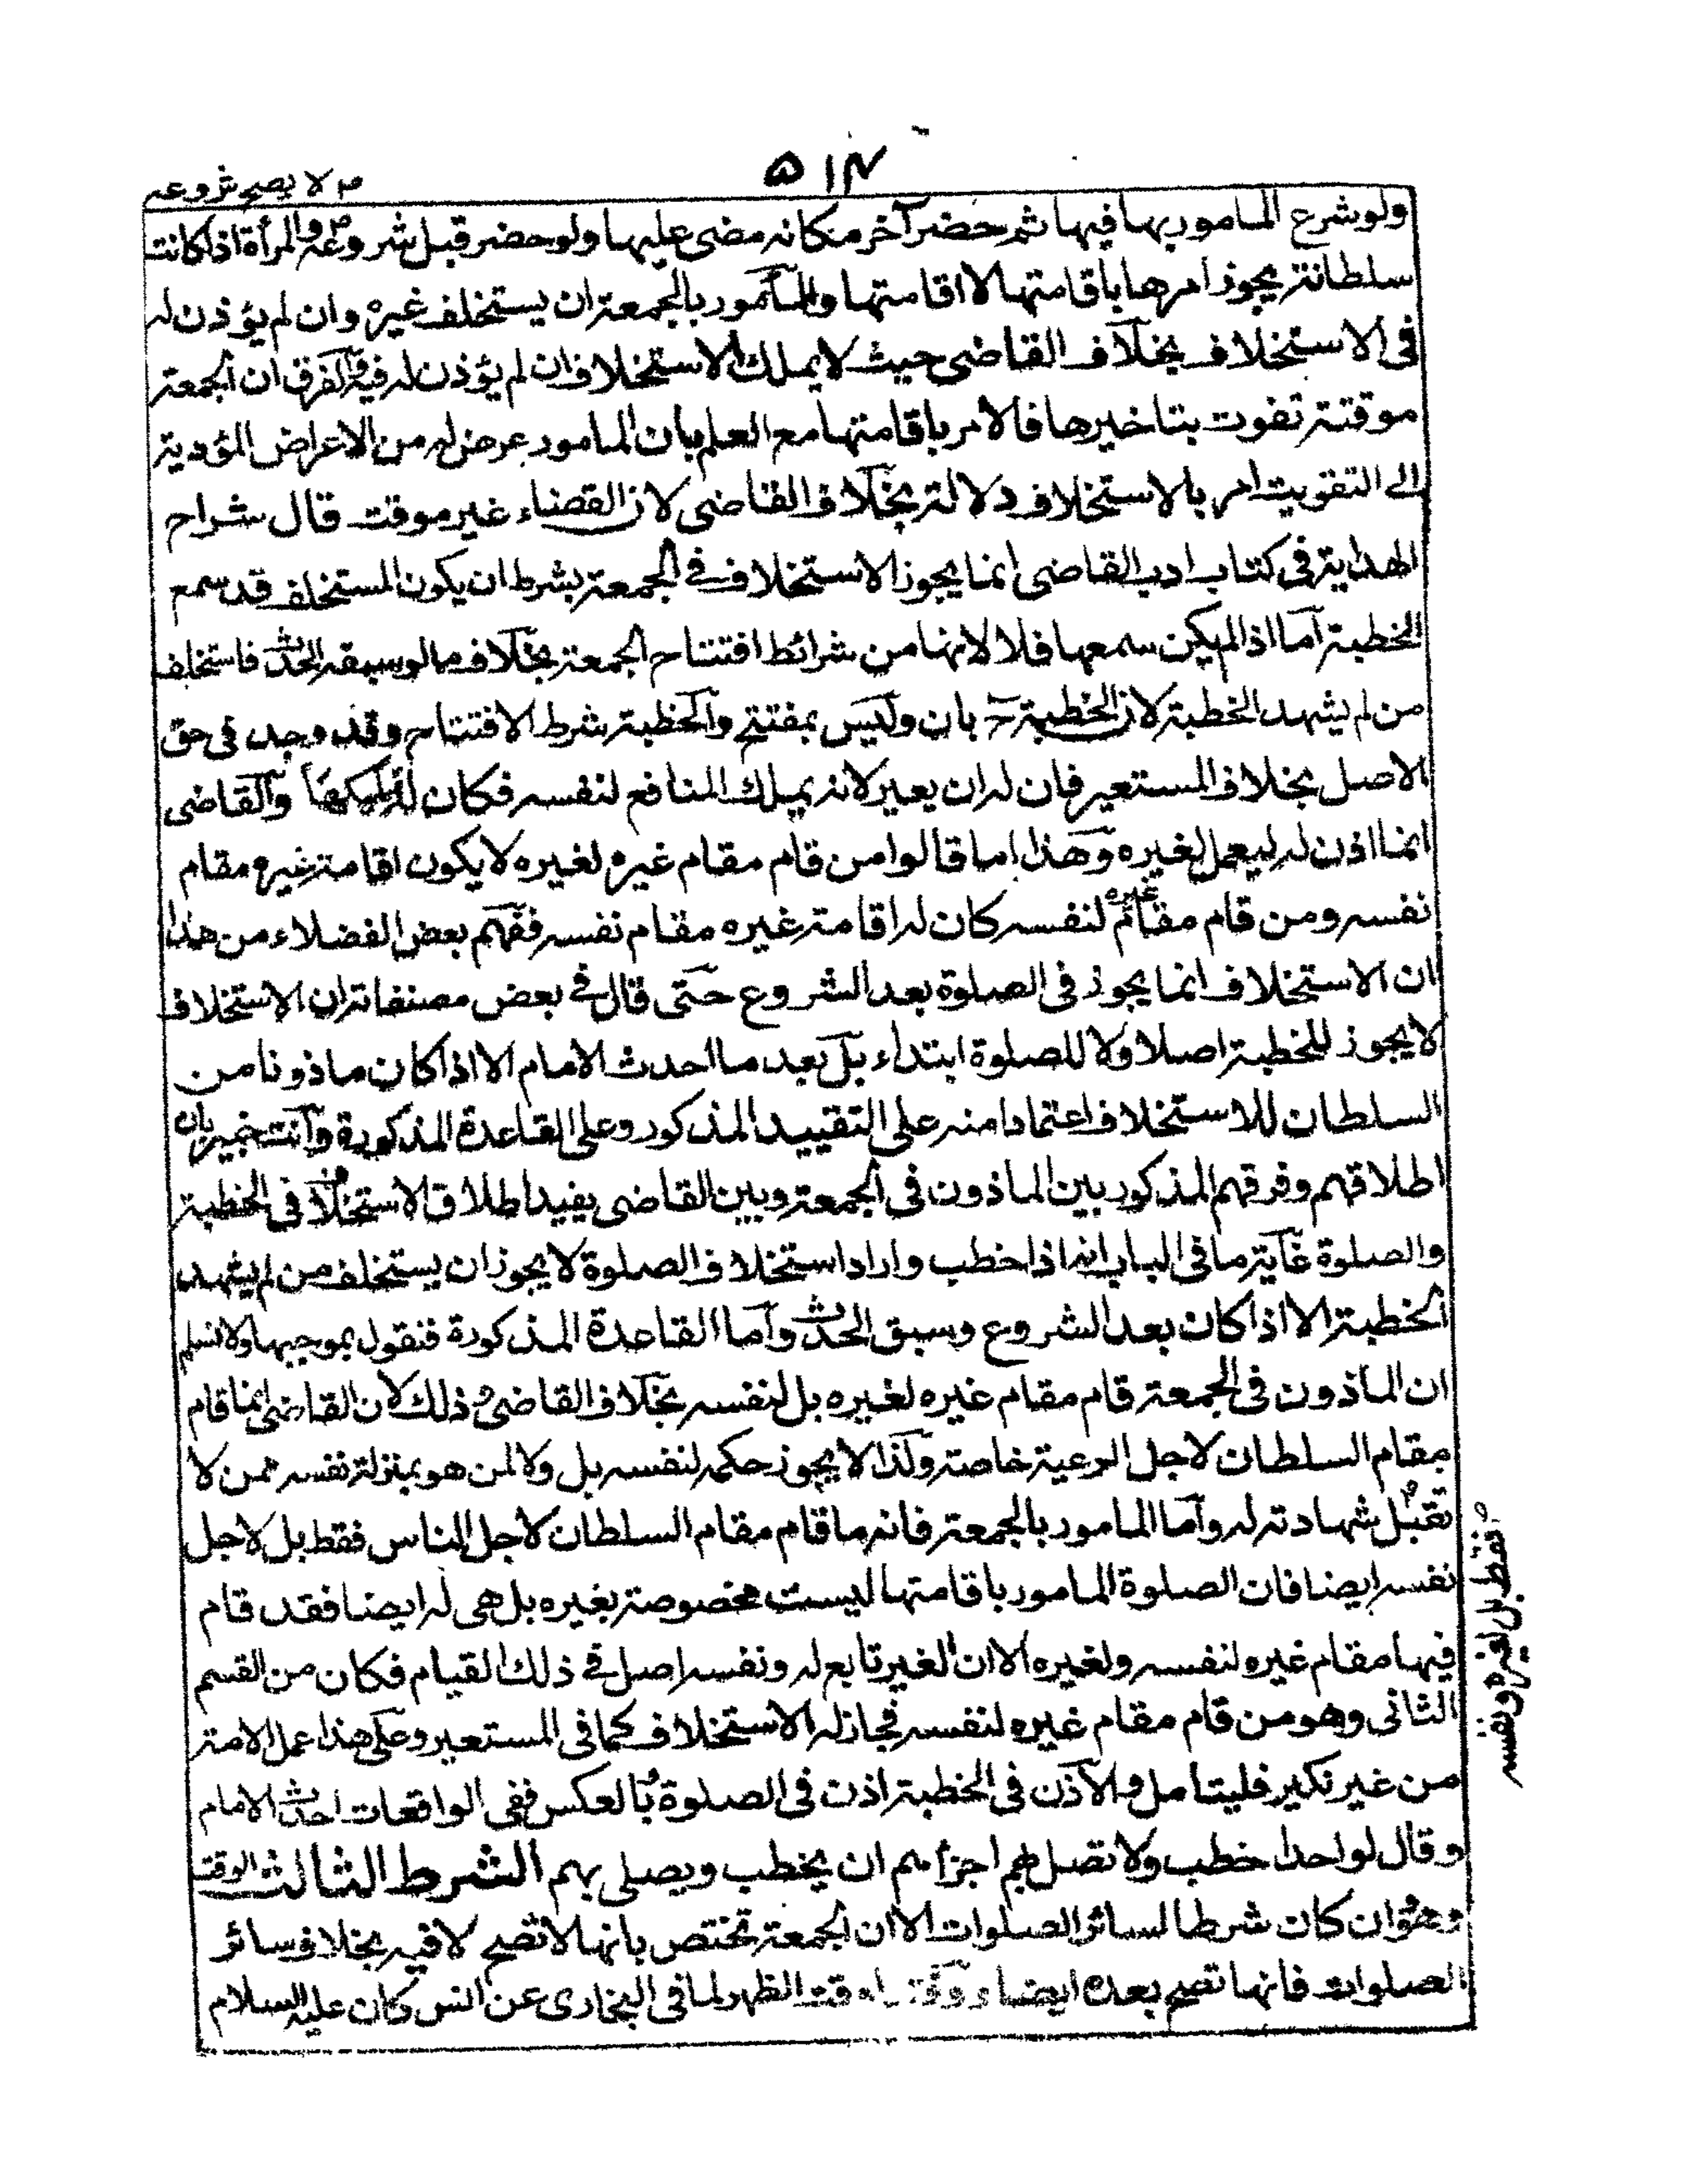 ۵۱۴
م لا يصح شروعه
ولو شرع المامور بها فيها ثم حضر آخر مكانه مضى عليها ولو حضر قبل شروعه م والمرأة اذا كانت
سلطانة يجوز امرها باقامتها لا اقامتها والمأمور بالجمعة ان يستخلف غيره وان لم يؤذن له
فى الاستخلاف بخلاف القاضى حيث لا يملك الاستخلاف ان لم يؤذن له فيه والفرق ان الجمعة
موقتة تفوت بتاخيرها فالامر باقامتها مع العلم بان المامور عرض له من الاعراض المؤدية
الى التفويت امر بالاستخلاف دلالة بخلاف القاضى لان القضاء غير موقت قال شراح
الهداية فى كتاب ادب القاضى انما يجوز الاستخلاف فى الجمعة بشرط ان يكون المستخلف قد سمع
الخطبة اما اذا لم يكن سمعها فلا لانها من شرائط افتتاح الجمعة بخلاف ما لو سبقه الحدث فاستخلف
من لم يشهد الخطبة لان الخطبة ح بان وليس بمفتتح والخطبة شرط الافتتاح وقد وجد فى حق
الاصل بخلاف المستعير فان له ان يعير لانه يملك المنافع لنفسه فكان له تمليكها والقاضى
انما اذن له ليعمل لغيره وهذا ما قالوا من قام مقام غيره لغيره لا يكون اقامة غيره مقام
نفسه ومن قام مقام غيره لنفسه كان له اقامة غيره مقام نفسه ففهم بعض الفضلاء من هذا
ان الاستخلاف انما يجوز فى الصلوة بعد الشروع حتى قال فى بعض مصنفاته ان الاستخلاف
لا يجوز للخطبة اصلا ولا للصلوة ابتداء بل بعد ما احدث الامام الا اذا كان ماذونا من
السلطان للاستخلاف اعتمادا منه على التقييد المذكور وعلى القاعدة المذكورة وانت خبير بان
اطلاقهم وفرقهم المذكور بين الماذون فى الجمعة وبين القاضى يفيد اطلاق الاستخلاف فى الخطبة
والصلوة غاية ما فى الباب انه اذا خطب واراد استخلاف الصلوة لا يجوز ان يستخلف من لم يشهد
الخطبة الا اذا كان بعد الشروع وسبق الحدث واما القاعدة المذكورة فنقول بموجبها ولا نسلم
ان الماذون فى الجمعة قام مقام غيره لغيره بل لنفسه بخلاف القاضى وذلك لان القاضى انما قام
مقام السلطان لاجل الرعية خاصة ولذا لا يجوز حكمه لنفسه بل ولا لمن هو بمنزلة نفسه ممن لا
تقبل شهادته له واما المامور بالجمعة فانه ما قام مقام السلطان لاجل الناس فقط بل لاجل
نفسه ايضا فان الصلوة المامور باقامتها ليست مخصوصة بغيره بل هى له ايضا فقد قام
فيها مقام غيره لنفسه ولغيره الا ان الغير تابع له ونفسه اصل فى ذلك القيام فكان من القسم
الثانى وهو من قام مقام غيره لنفسه فجاز له الاستخلاف كما فى المستعير وعلى هذا عمل الامة
من غير نكير فليتامل والاذن فى الخطبة اذن فى الصلوة وبالعكس ففى الواقعات احدث الامام
وقال لواحد اخطب ولا تصل بهم اجزأهم ان يخطب ويصلى بهم الشرط الثالث الوقت
وهو وان كان شرطا لسائر الصلوات الا ان الجمعة تختص بانها لا تصح الا فيه بخلاف سائر
الصلوات فانها تصح بعده ايضا وقت الظهر لما فى البخارى عن انس كان عليه السلام
فقط بل لغيره ونفسه